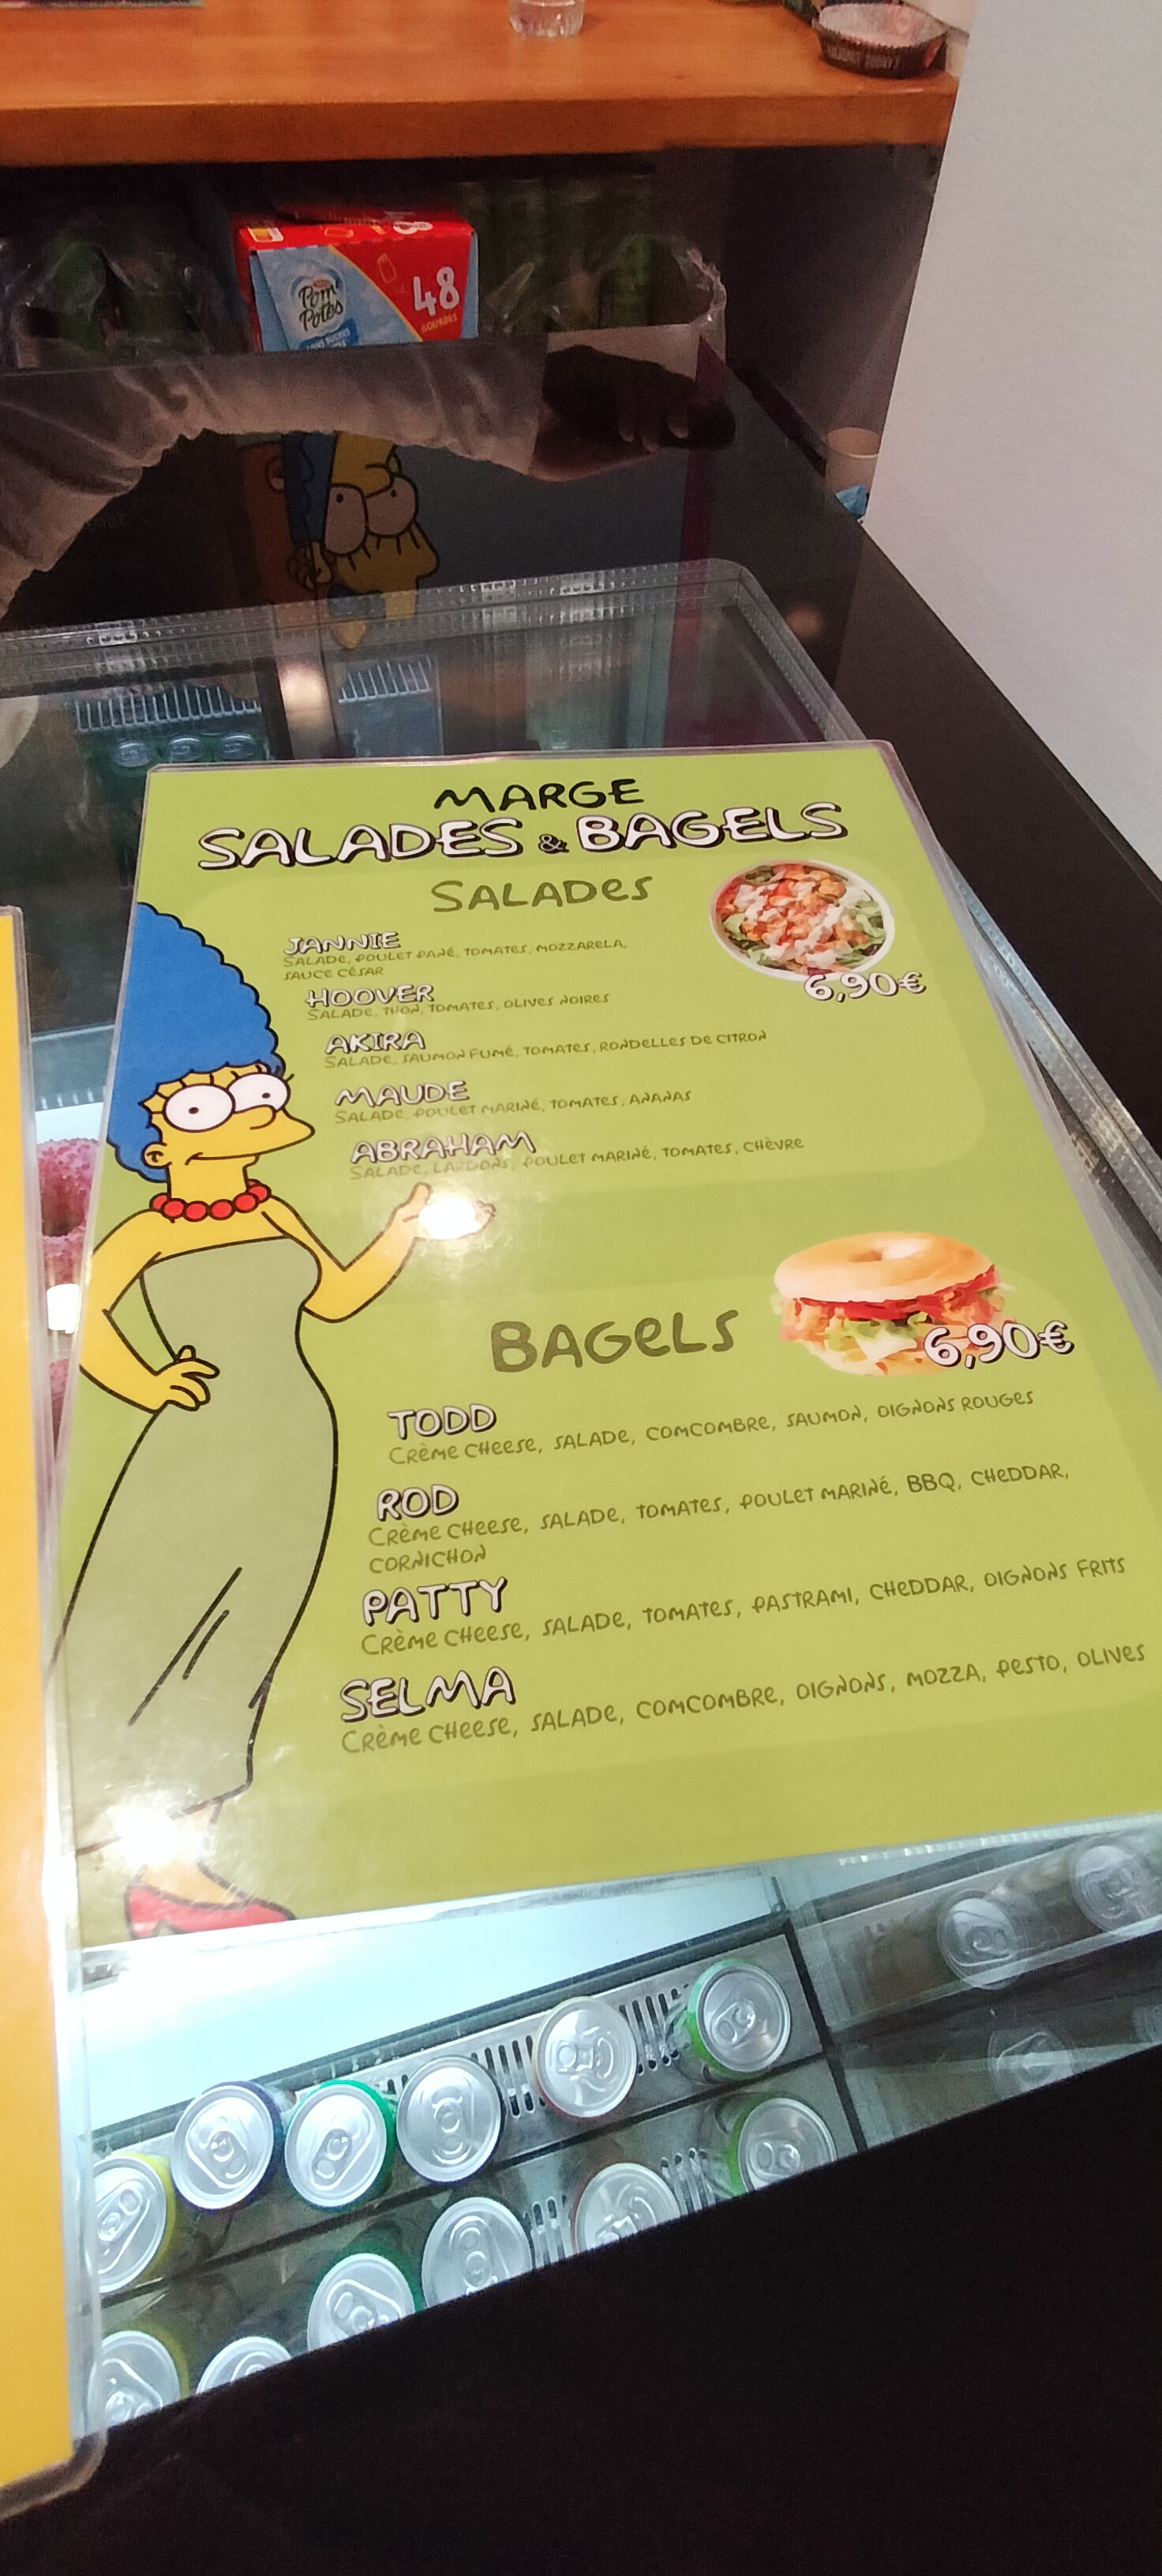 Pom'
Potes
48
GOURDES
MARGE
SALADES & BAGELS
SALADES
JANNIE
SALADE, POULET PANÉ, TOMATES, MOZZARELA,
SAUCE CÉSAR
6,90€
HOOVER
SALADE, THON, TOMATES, OLIVES NOIRES
AKIRA
SALADE, SAUMON FUMÉ, TOMATES, RONDELLES DE CITRON
MAUDE
SALADE, POULET MARINÉ, TOMATES, ANANAS
ABRAHAM
SALADE, LARDONS, POULET MARINÉ, TOMATES, CHÈVRE
BAGELS
6,90€
TODD
CRÈME CHEESE, SALADE, COMCOMBRE, SAUMON, OIGNONS ROUGES
ROD
CRÈME CHEESE, SALADE, TOMATES, POULET MARINÉ, BBQ, CHEDDAR,
CORNICHON
PATTY
CRÈME CHEESE, SALADE, TOMATES, PASTRAMI, CHEDDAR, OIGNONS FRITS
SELMA
CRÈME CHEESE, SALADE, COMCOMBRE, OIGNONS, MOZZA, PESTO, OLIVES